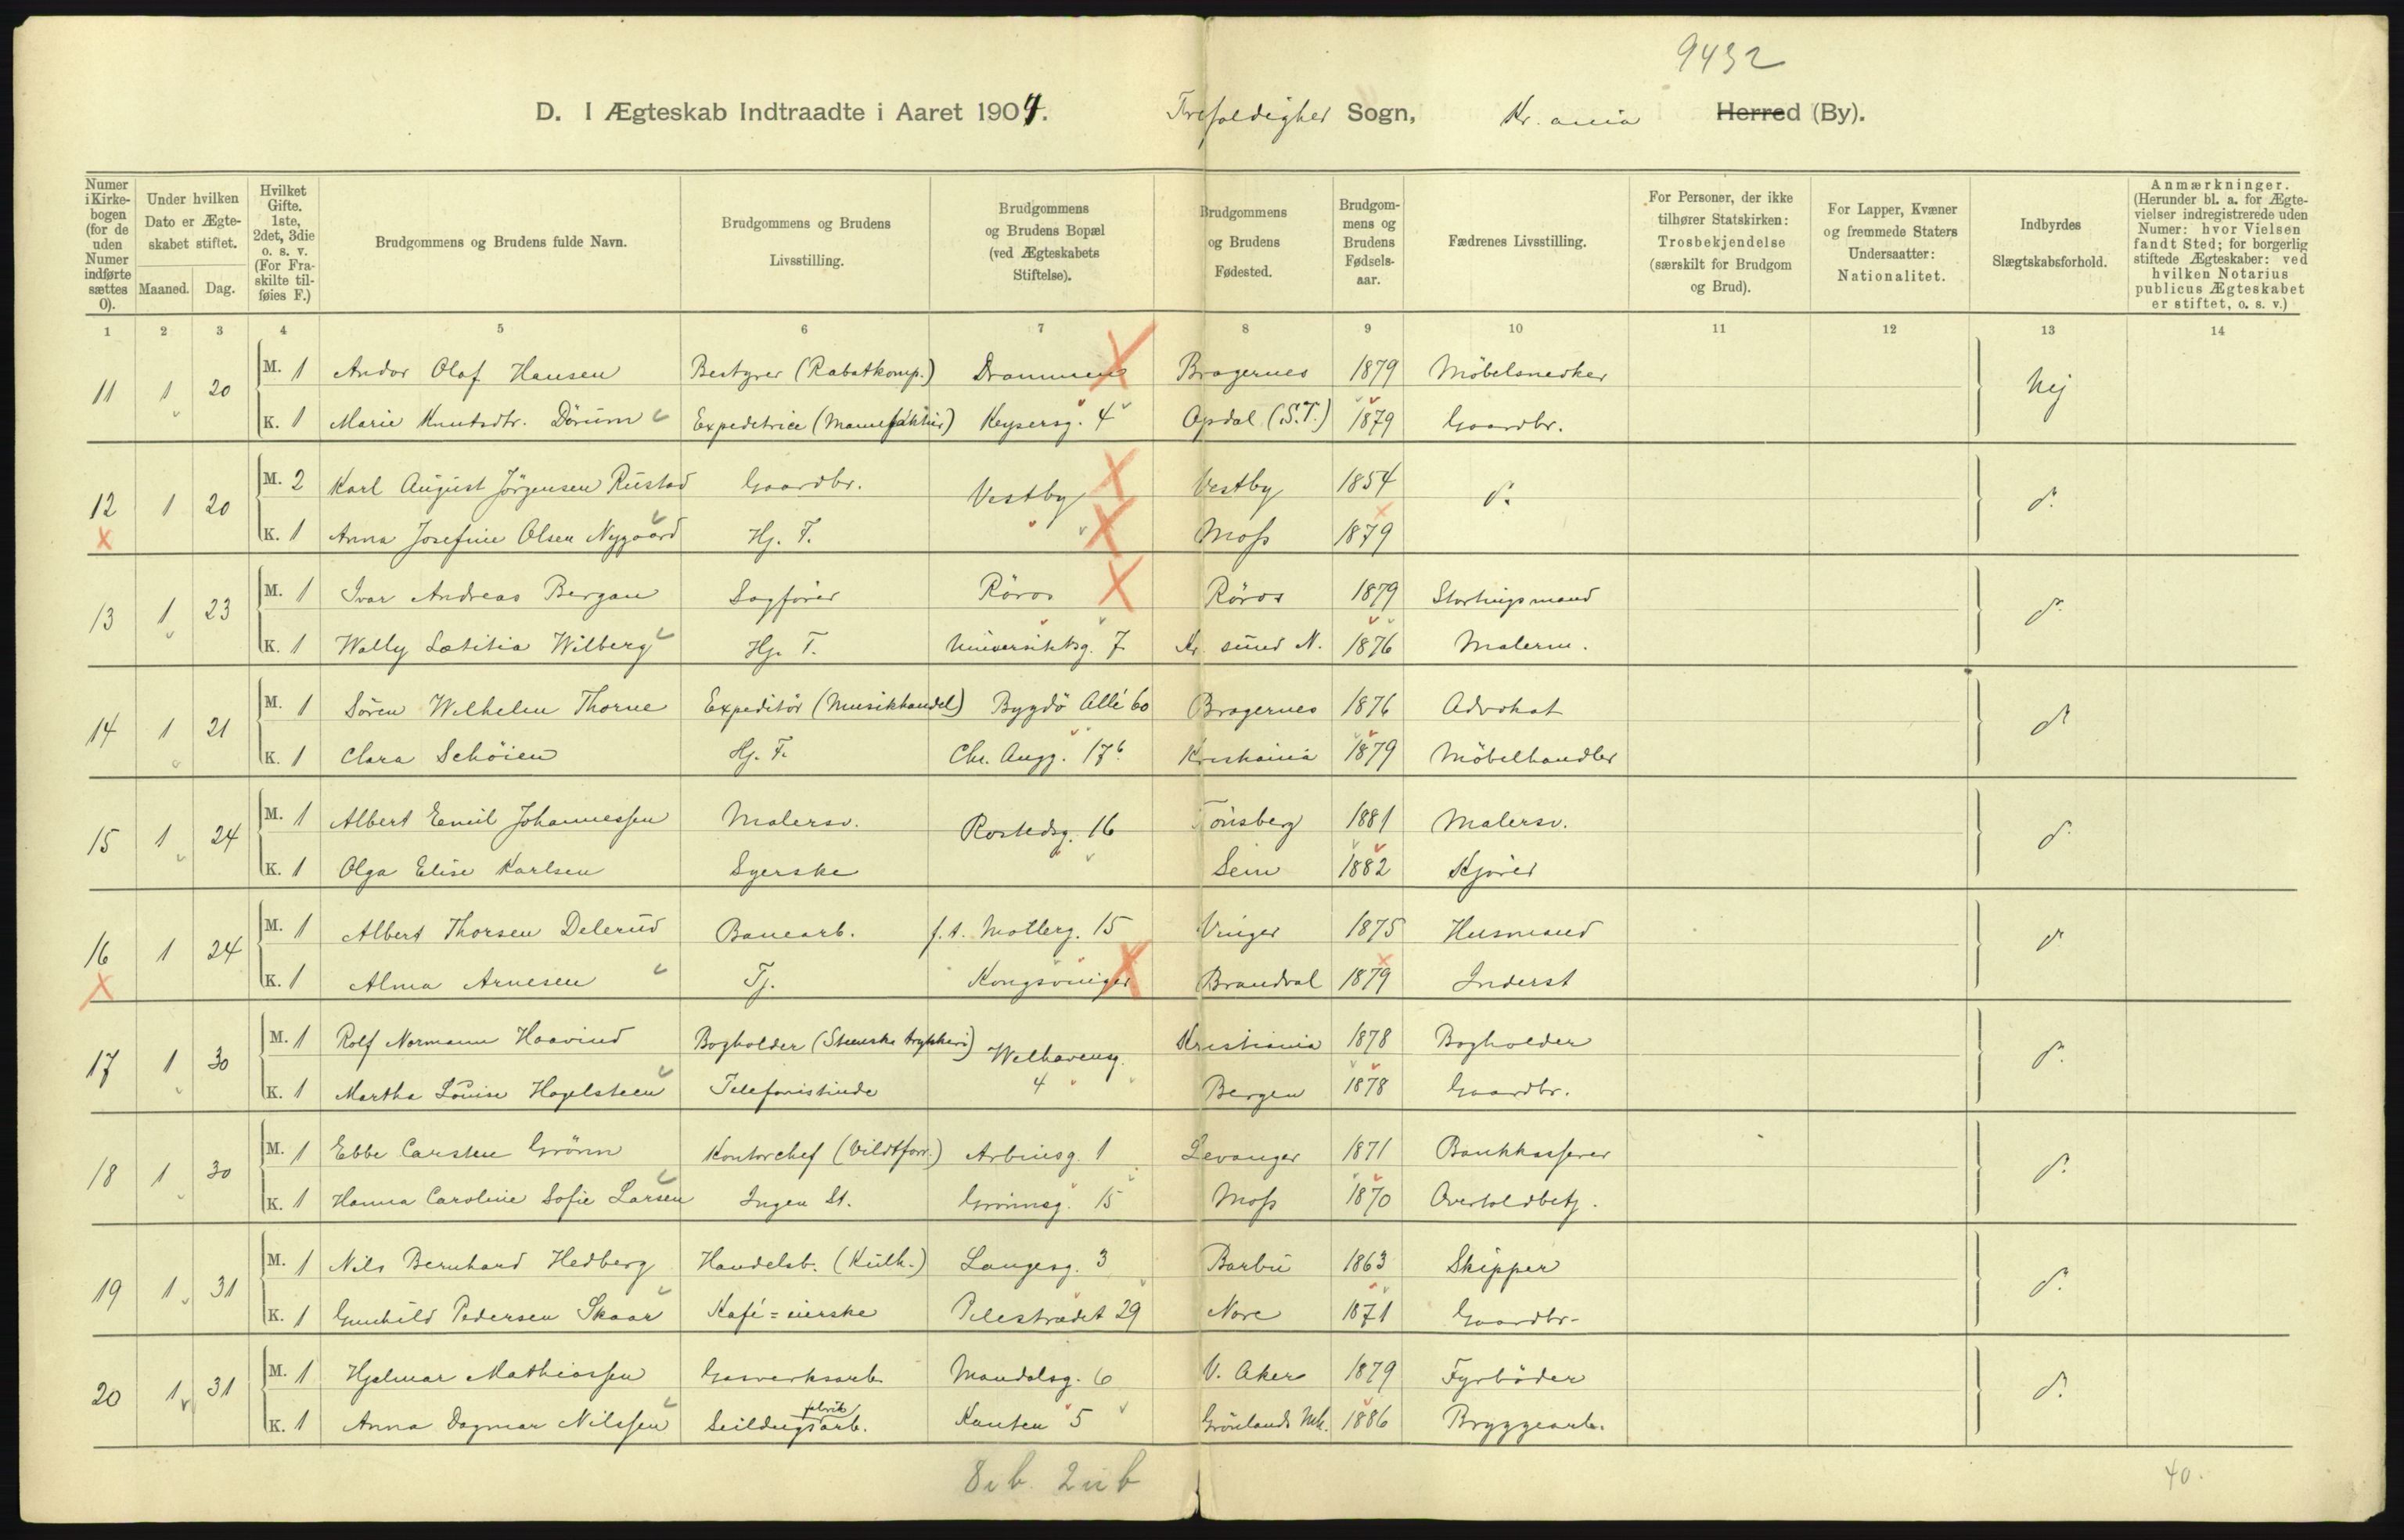 9432
D. I Ægteskab Indtraadte i Aaret 1904. Trefoldighed Sogn, Kr.ania Herred (By).
Numer i Kirkebogen (for de uden Numer indførte sættes 0).
Under hvilken Dato er Ægteskabet stiftet.
Maaned. Dag.
Hvilket Gifte. 1ste, 2det, 3die o. s. v. (For Fraskilte tilføies F.)
Brudgommens og Brudens fulde Navn.
Brudgommens og Brudens Livsstilling.
Brudgommens og Brudens Bopæl (ved Ægteskabets Stiftelse).
Brudgommens og Brudens Fødested.
Brudgommens og Brudens Fødselsaar.
Fædrenes Livsstilling.
For Personer, der ikke tilhører Statskirken: Trosbekjendelse (særskilt for Brudgom og Brud).
For Lapper, Kvæner og fremmede Staters Undersaatter: Nationalitet.
Indbyrdes Slægtskabsforhold.
Anmærkninger. (Herunder bl. a. for Ægtevielser indregistrerede uden Numer: hvor Vielsen fandt Sted; for borgerlig stiftede Ægteskaber: ved hvilken Notarius publicus Ægteskabet er stiftet, o. s. v.)
1 2 3 4 5 6 7 8 9 10 11 12 13 14
11 1 20 M. 1 Andor Olaf Hansen Bestyrer (Rabatkomp.) Drammen Bragernes 1879 Möbelsnedker Nej
K. 1 Marie Knutsdtr. Dörum Expeditrice (Manufaktur) Keysersg. 4 Opdal (S.T.) 1879 Gaardbr.
12 1 20 M. 2 Karl August Jörgensen Rustad Gaardbr. Vestby Vestby 1854 d. d.
K. 1 Anna Josefine Olsen Nygaard Hj. T. Moss 1879
13 1 23 M. 1 Ivar Andreas Bergan Sagförer Röros Röros 1879 Stortingsmand d.
K. 1 Wally Lætitia Wilberg Hj. T. Universitetsg. 7 Kr. sund N. 1876 Malerm.
14 1 21 M. 1 Sören Wilhelm Thorne Expeditör (Musikhandel) Bygdö Allé 60 Bragernes 1876 Advokat d
K. 1 Clara Schöien Hj. T. Chr. Augg. 17b. Kristiania 1879 Möbelhandler
15 1 24 M. 1 Albert Emil Johannessen Malersv. Rostedsg. 16 Tönsberg 1881 Malersv. d.
K. 1 Olga Elise Karlsen Syerske Sem 1882 Kjörer
16 1 24 M. 1 Albert Thorsen Delerud Banearb. f. t. Möllerg. 15 Vinger 1875 Husmand d
K. 1 Alma Arnesen Tj. Kongsvinger Brandval 1879 Inderst
17 1 30 M. 1 Rolf Normann Haavind Bogholder (Steenske trykkeri) Welhavensg. Kristiania 1878 Bogholder d.
K. 1 Martha Louise Hagelsteen Telefonistinde 4 Bergen 1878 Gaardbr.
18 1 30 M. 1 Ebbe Carsten Grönn Kontorchef (Vildtforr.) Arbinsg. 1 Levanger 1871 Bankkasserer d.
K. 1 Hanna Caroline Sofie Larsen Ingen St. Grönnsg. 15 Moss 1870 Overtoldbetj.
19 1 31 M. 1 Nils Bernhard Hedberg Handelsb. (Kulh.) Langesg. 3 Barbu 1863 Skipper d.
K. 1 Gunhild Pedersen Skaar Kafé=eierske Pilestrædet 29 Nore 1871 Gaardbr.
20 1 31 M. 1 Hjalmar Mathiassen Gasverksarb. Mandalsg. 6 V. Aker 1879 Fyrböder d.
K. 1 Anna Dagmar Nilssen Seildugsfabrikarb. Kanten 5 Grönlands Mk. 1886 Bryggearb.
40.